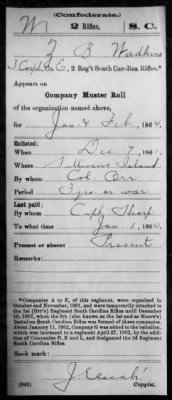 (Confederate.)
W 2 Rifles. S. C.
Z B Wadkins
3 Corpl, Co. E, 2 Reg't South Carolina Rifles.*
Appears on
Company Muster Roll
of the organization named above,
for Jan & Feb, 1864.
Enlisted:
When Dec 7, 1861.
Where Island
By whom Col Orr
Period 3 yrs or war
Last paid:
By whom Capt Sharp
To what time Jan 1, 1864.
Present or absent Present
Remarks:
*Companies A to F, of this regiment, were organized in
October and November, 1861, and were temporarily attached to
the 1st (Orr's) Regiment South Carolina Rifles until December
10, 1861, when the 5th (also known as the 1st and as Moore's)
Battalion South Carolina Rifles was formed of these companies.
About January 11, 1862, Company G was added to the battalion,
which was increased to a regiment April 27, 1862, by the addition
of Companies and L, and designated the 2d Regiment
South Carolina Rifles.
Book mark:
(642)
Copyist.